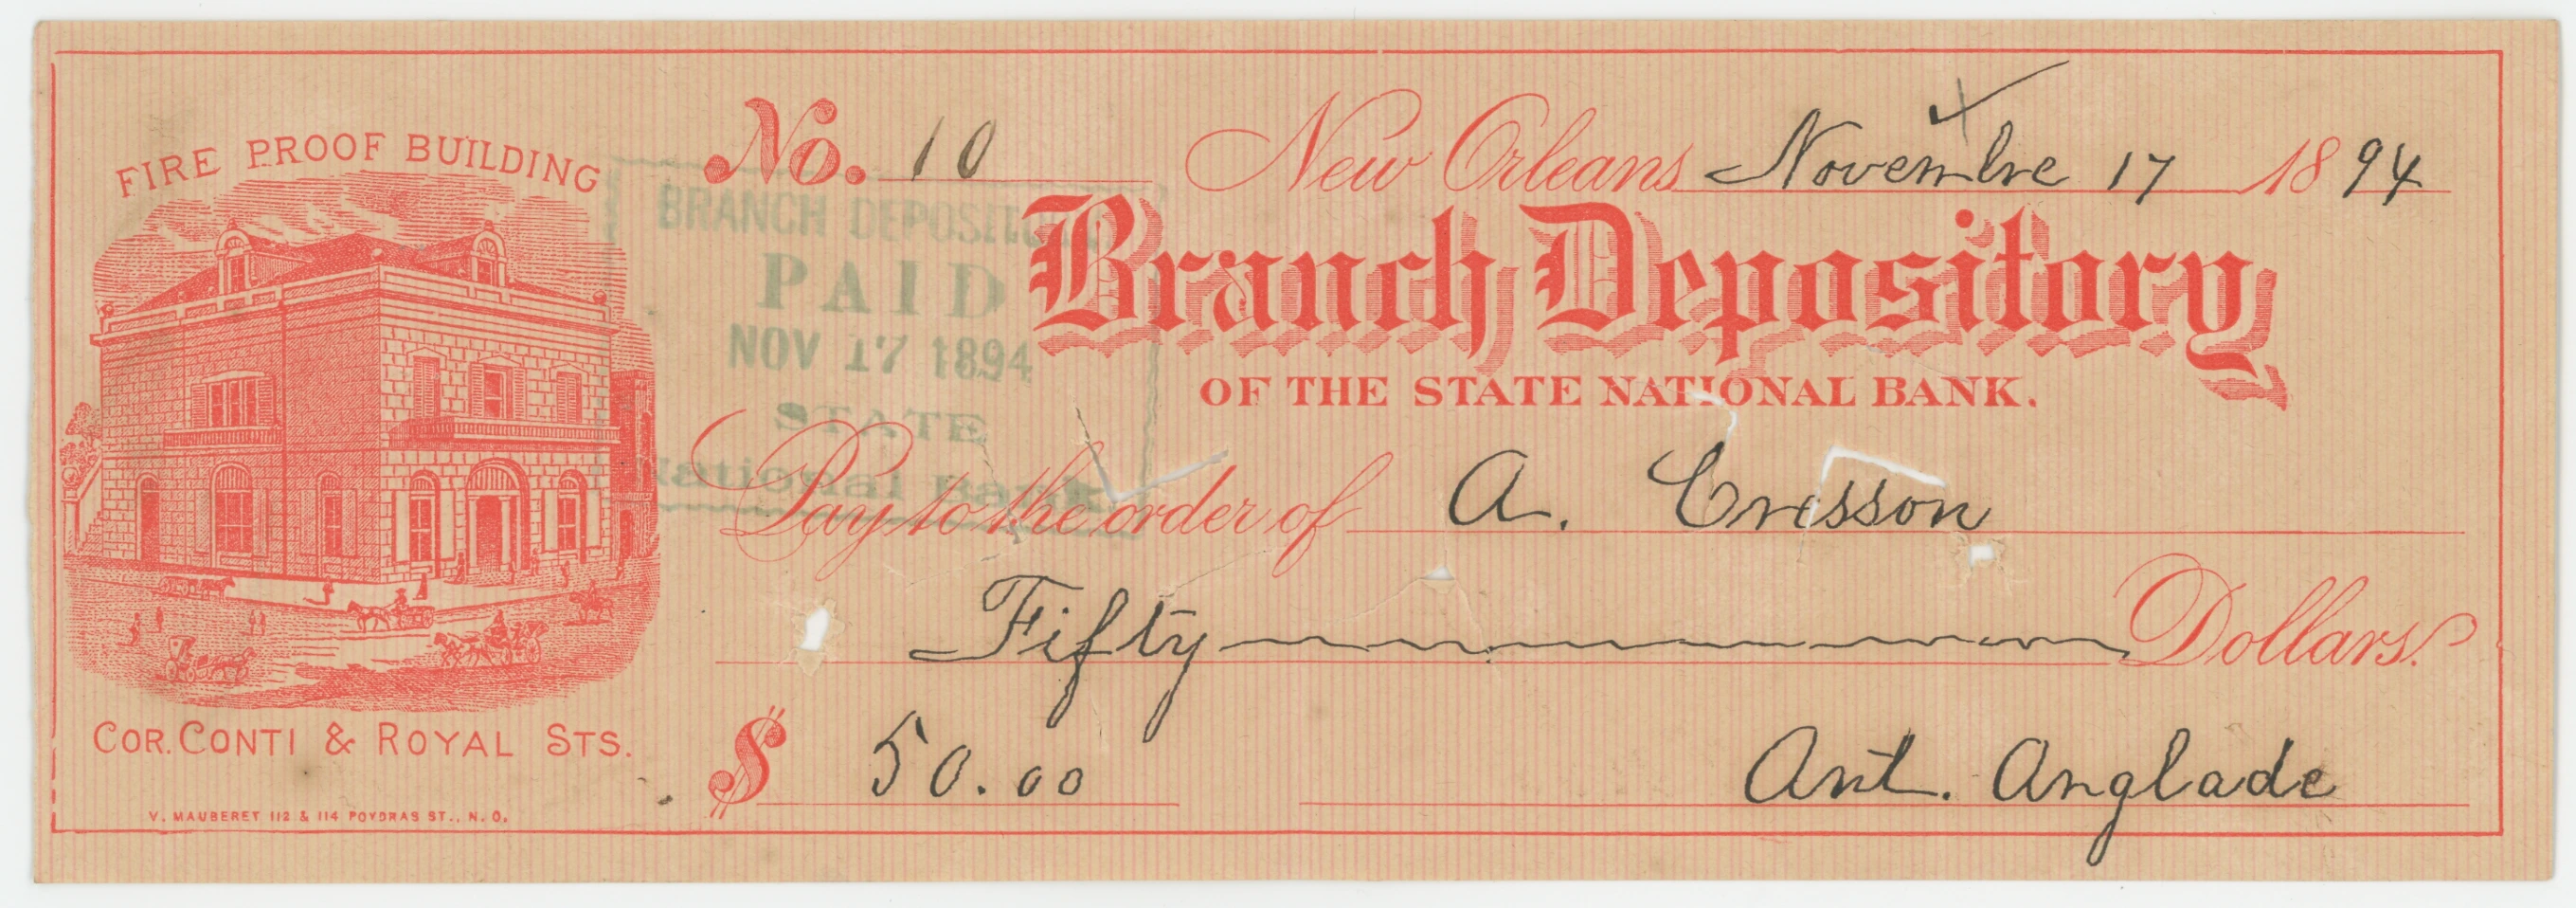 FIRE PROOF BUILDING
COR. CONTI & ROYAL STS.
V. MAUBERET 112 & 114 POYDRAS ST., N. O.
No. 10
New Orleans Novembre 17 1894
BRANCH DEPOSITORY
PAID
NOV 17 1894
STATE
National Bank
Branch Depository
OF THE STATE NATIONAL BANK.
Pay to the order of A. Cresson
Fifty Dollars.
$ 50.00
Ant. Anglade